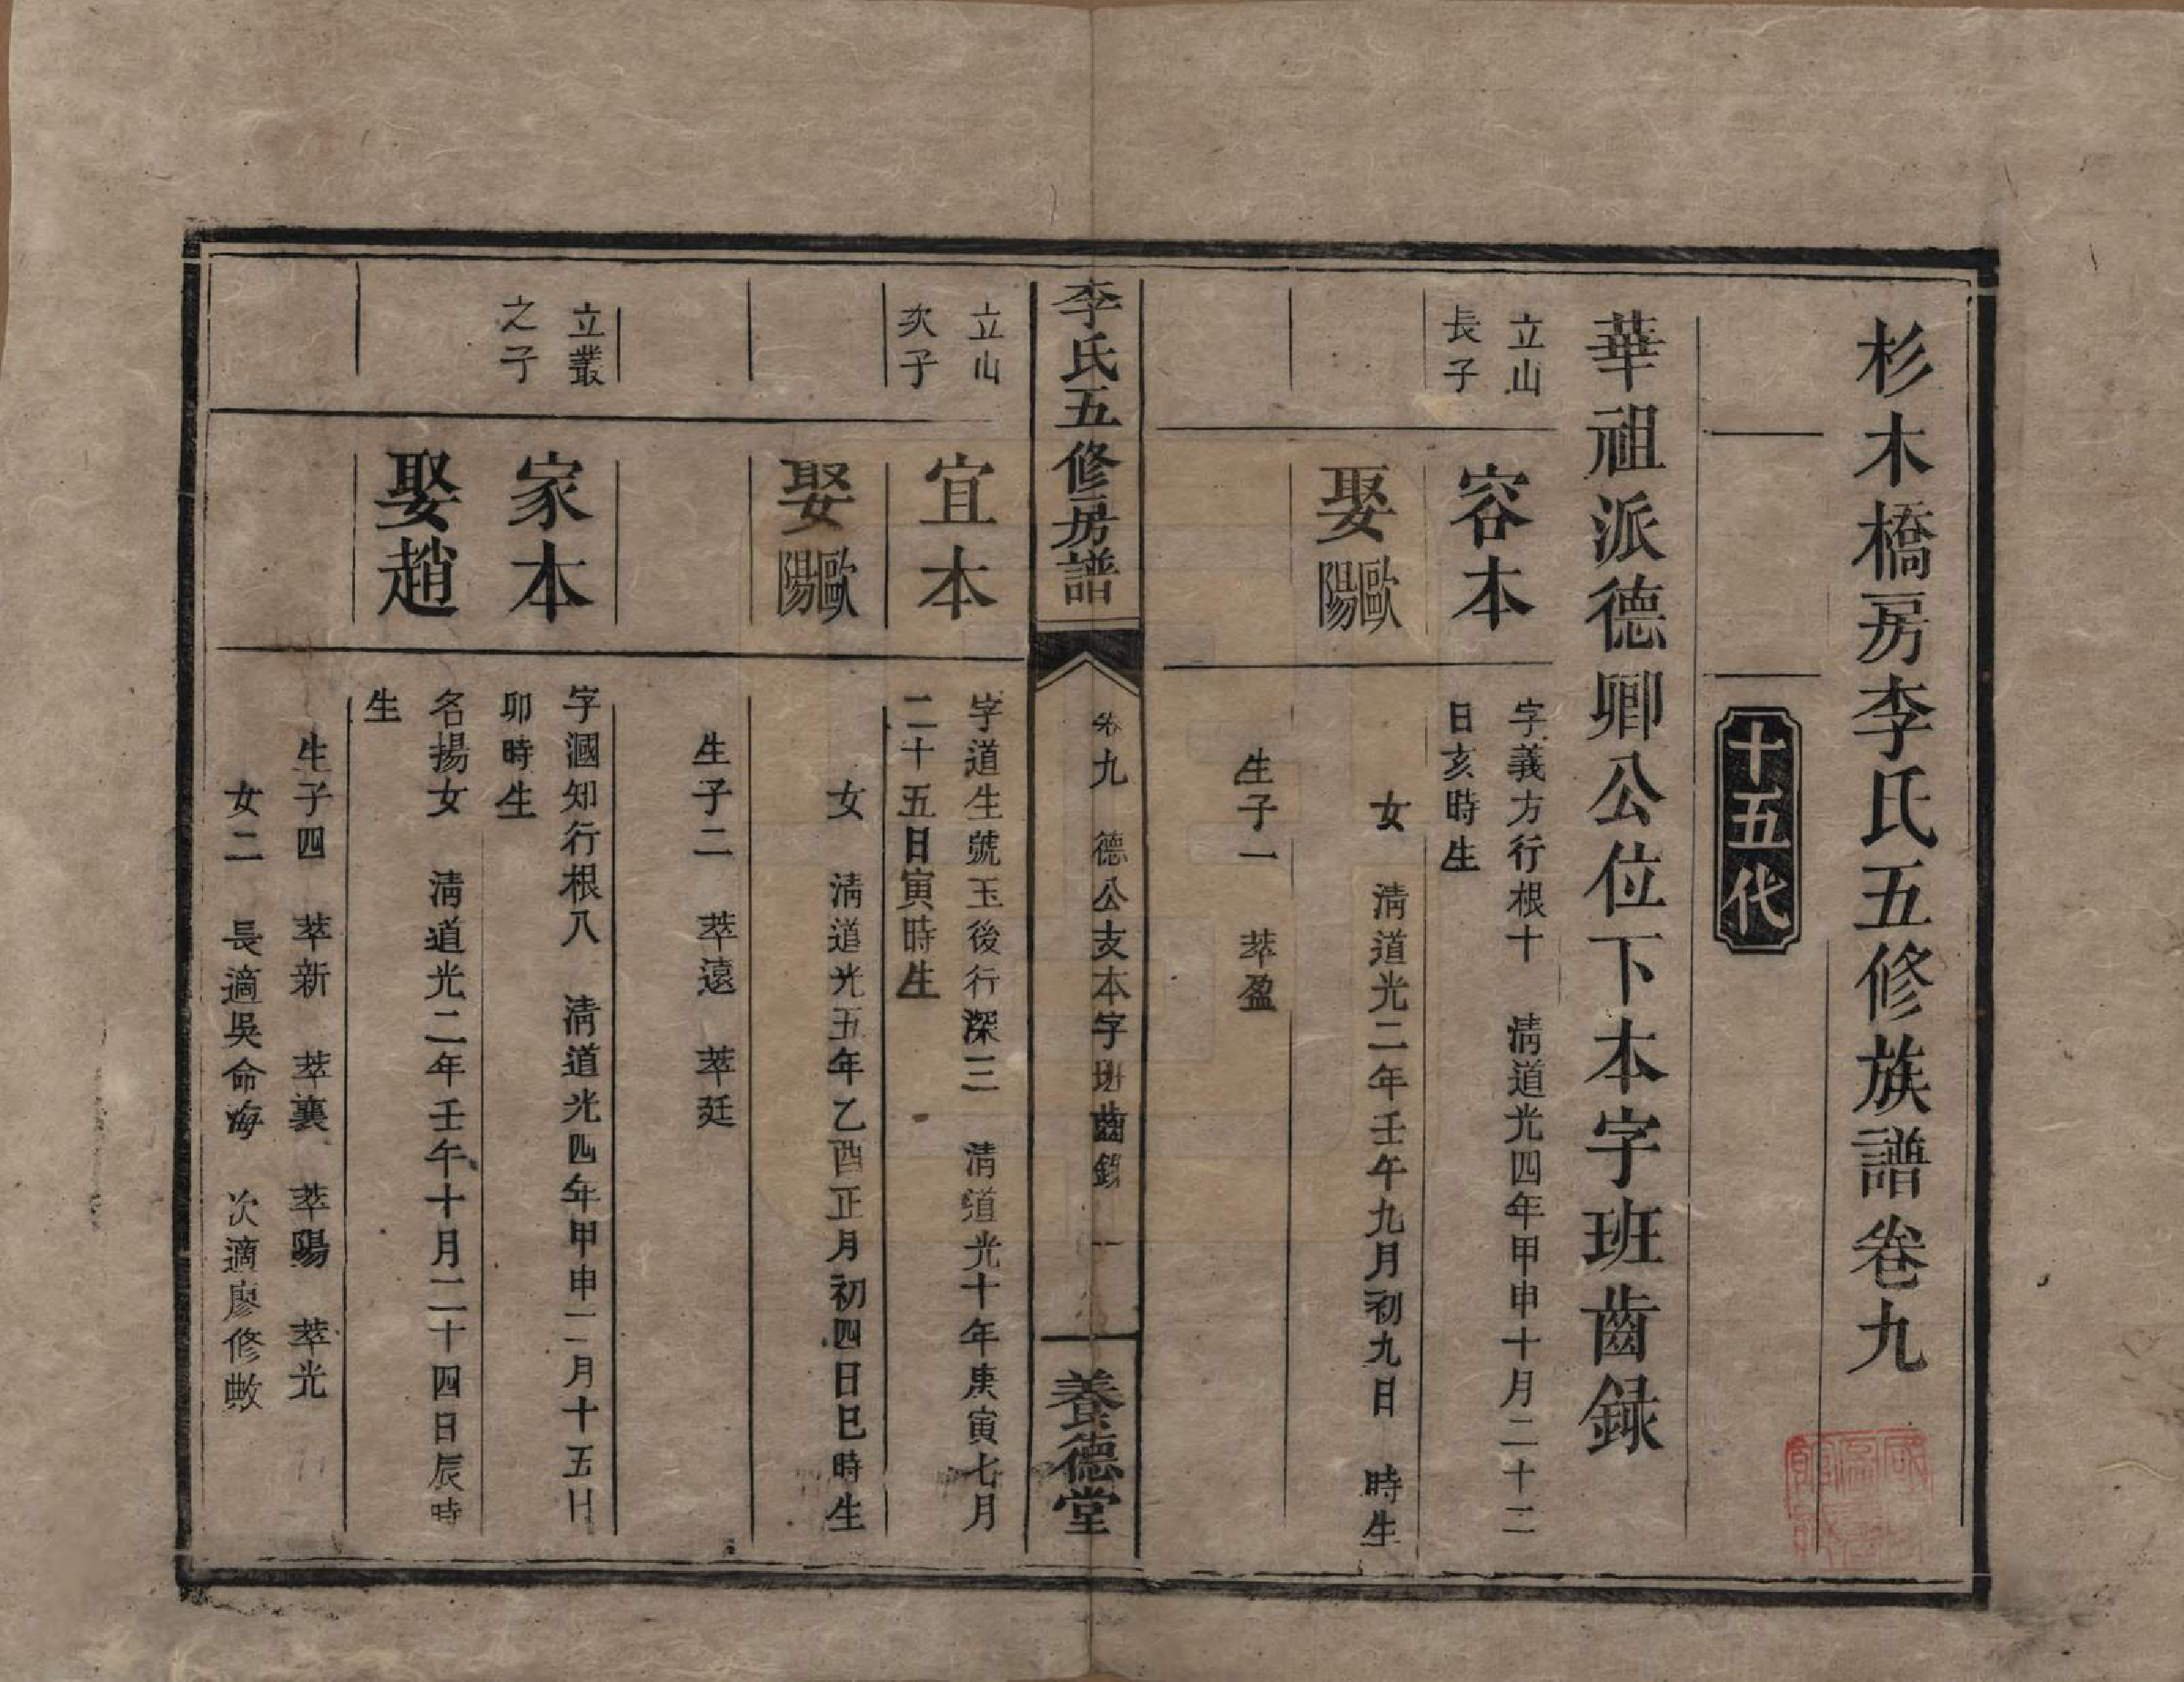 杉木橋房李氏五修族譜卷九
十五代
華祖派德卿公位下本字班齒録
立山
長子
容本
字義方行根十　清道光四年甲申十月二十二
日亥時生
娶歐陽
女　清道光二年壬午九月初九日　時生
生子一　萃盈
李氏五修房譜
卷九　德公支本字班齒錄　一
養德堂
立山
次子
宜本
字道生號玉後行深三　清道光十年庚寅七月
二十五日寅時生
娶歐陽
女　清道光五年乙酉正月初四日巳時生
生子二　萃遠　萃廷
立叢
之子
家本
字涸知行根八　清道光四年甲申二月十五日
卯時生
娶趙
名揚女　清道光二年壬午十月二十四日辰時
生
生子四　萃新　萃襄　萃陽　萃光
女二　長適吳命海　次適廖修敷